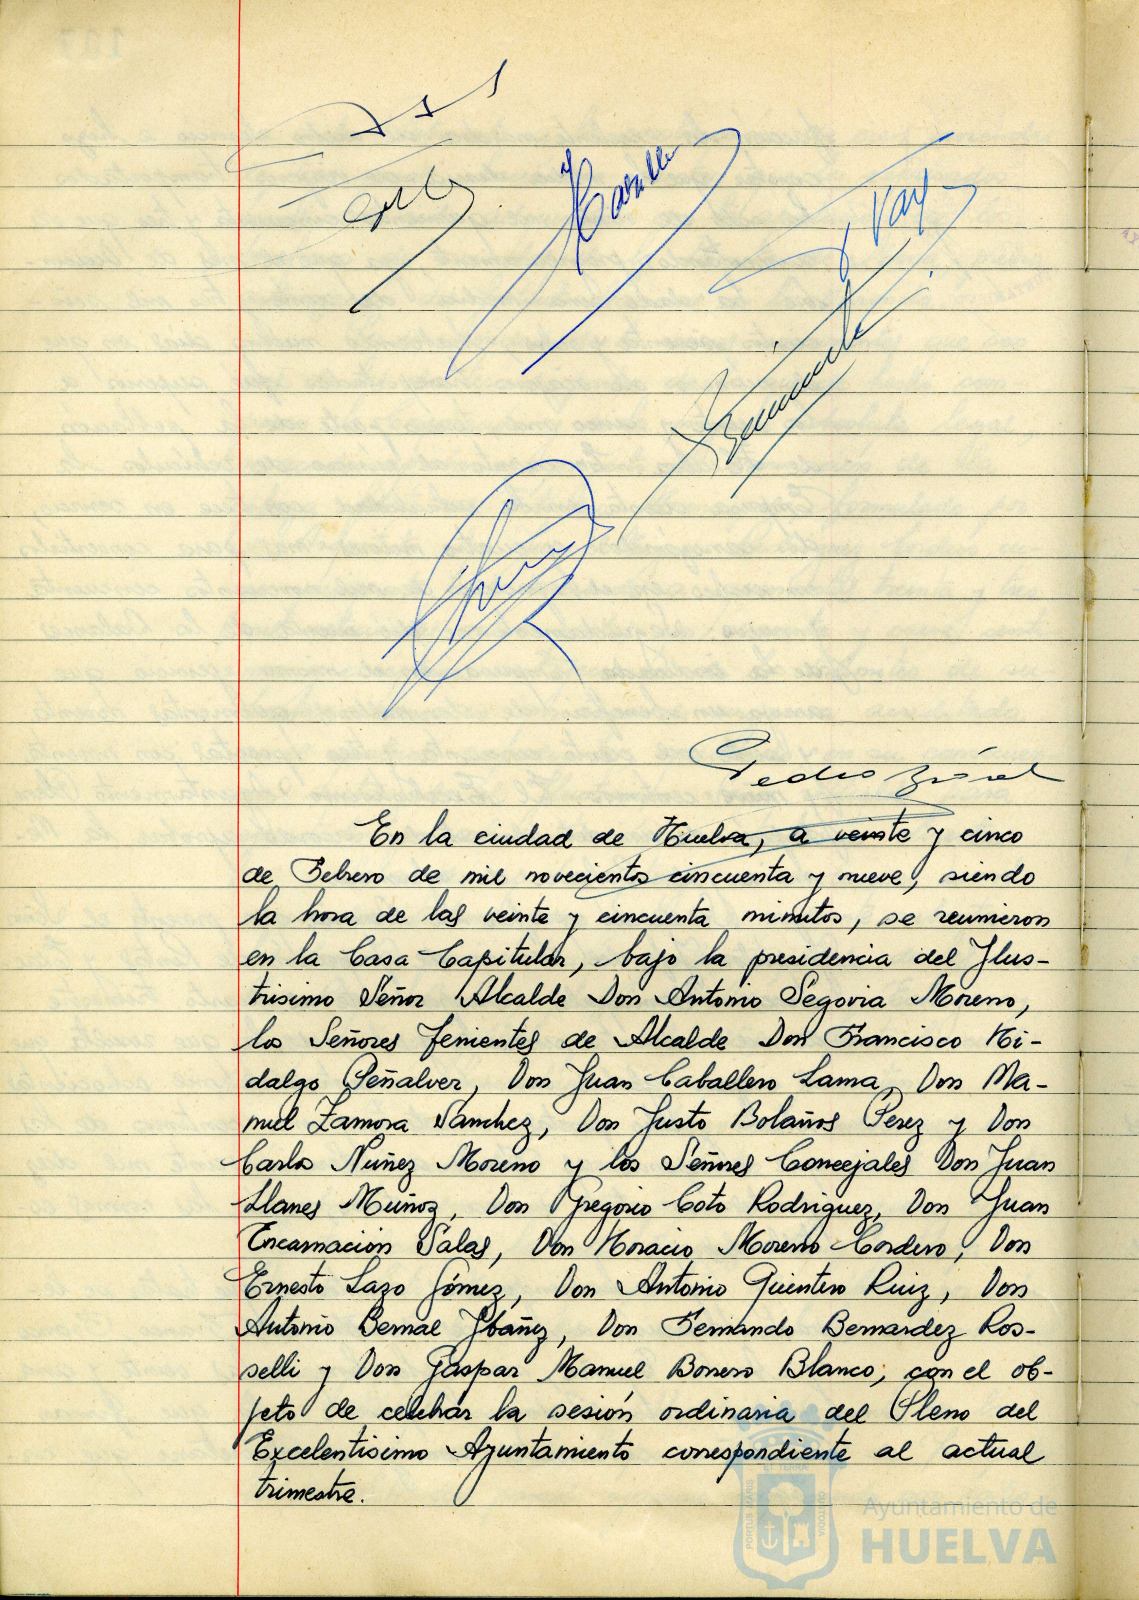 En la ciudad de Huelva, a veinte y cinco
de Febrero de mil novecientos cincuenta y nueve, siendo
la hora de las veinte y cincuenta minutos, se reunieron
en la Casa Capitular, bajo la presidencia del Ilus-
trisimo Señor Alcalde Don Antonio Segovia Moreno,
los Señores Tenientes de Alcalde Don Francisco Hi-
dalgo Peñalver, Don Juan Caballero Lama, Don Ma-
nuel Zamora Sanchez, Don Justo Bolaños Perez y Don
Carlos Nuñez Moreno y los Señores Concejales Don Juan
Llanes Muñoz, Don Gregorio Coto Rodriguez, Don Juan
Encarnacion Salas, Don Horacio Moreno Cordero, Don
Ernesto Lazo Gómez, Don Antonio Quintero Ruiz, Don
Antonio Bernal Ibañez, Don Fernando Bernardez Ros-
selli y Don Gaspar Manuel Bonero Blanco, con el ob-
jeto de celebrar la sesión ordinaria del Pleno del
Excelentisimo Ayuntamiento correspondiente al actual
trimestre.
Ayuntamiento de
HUELVA